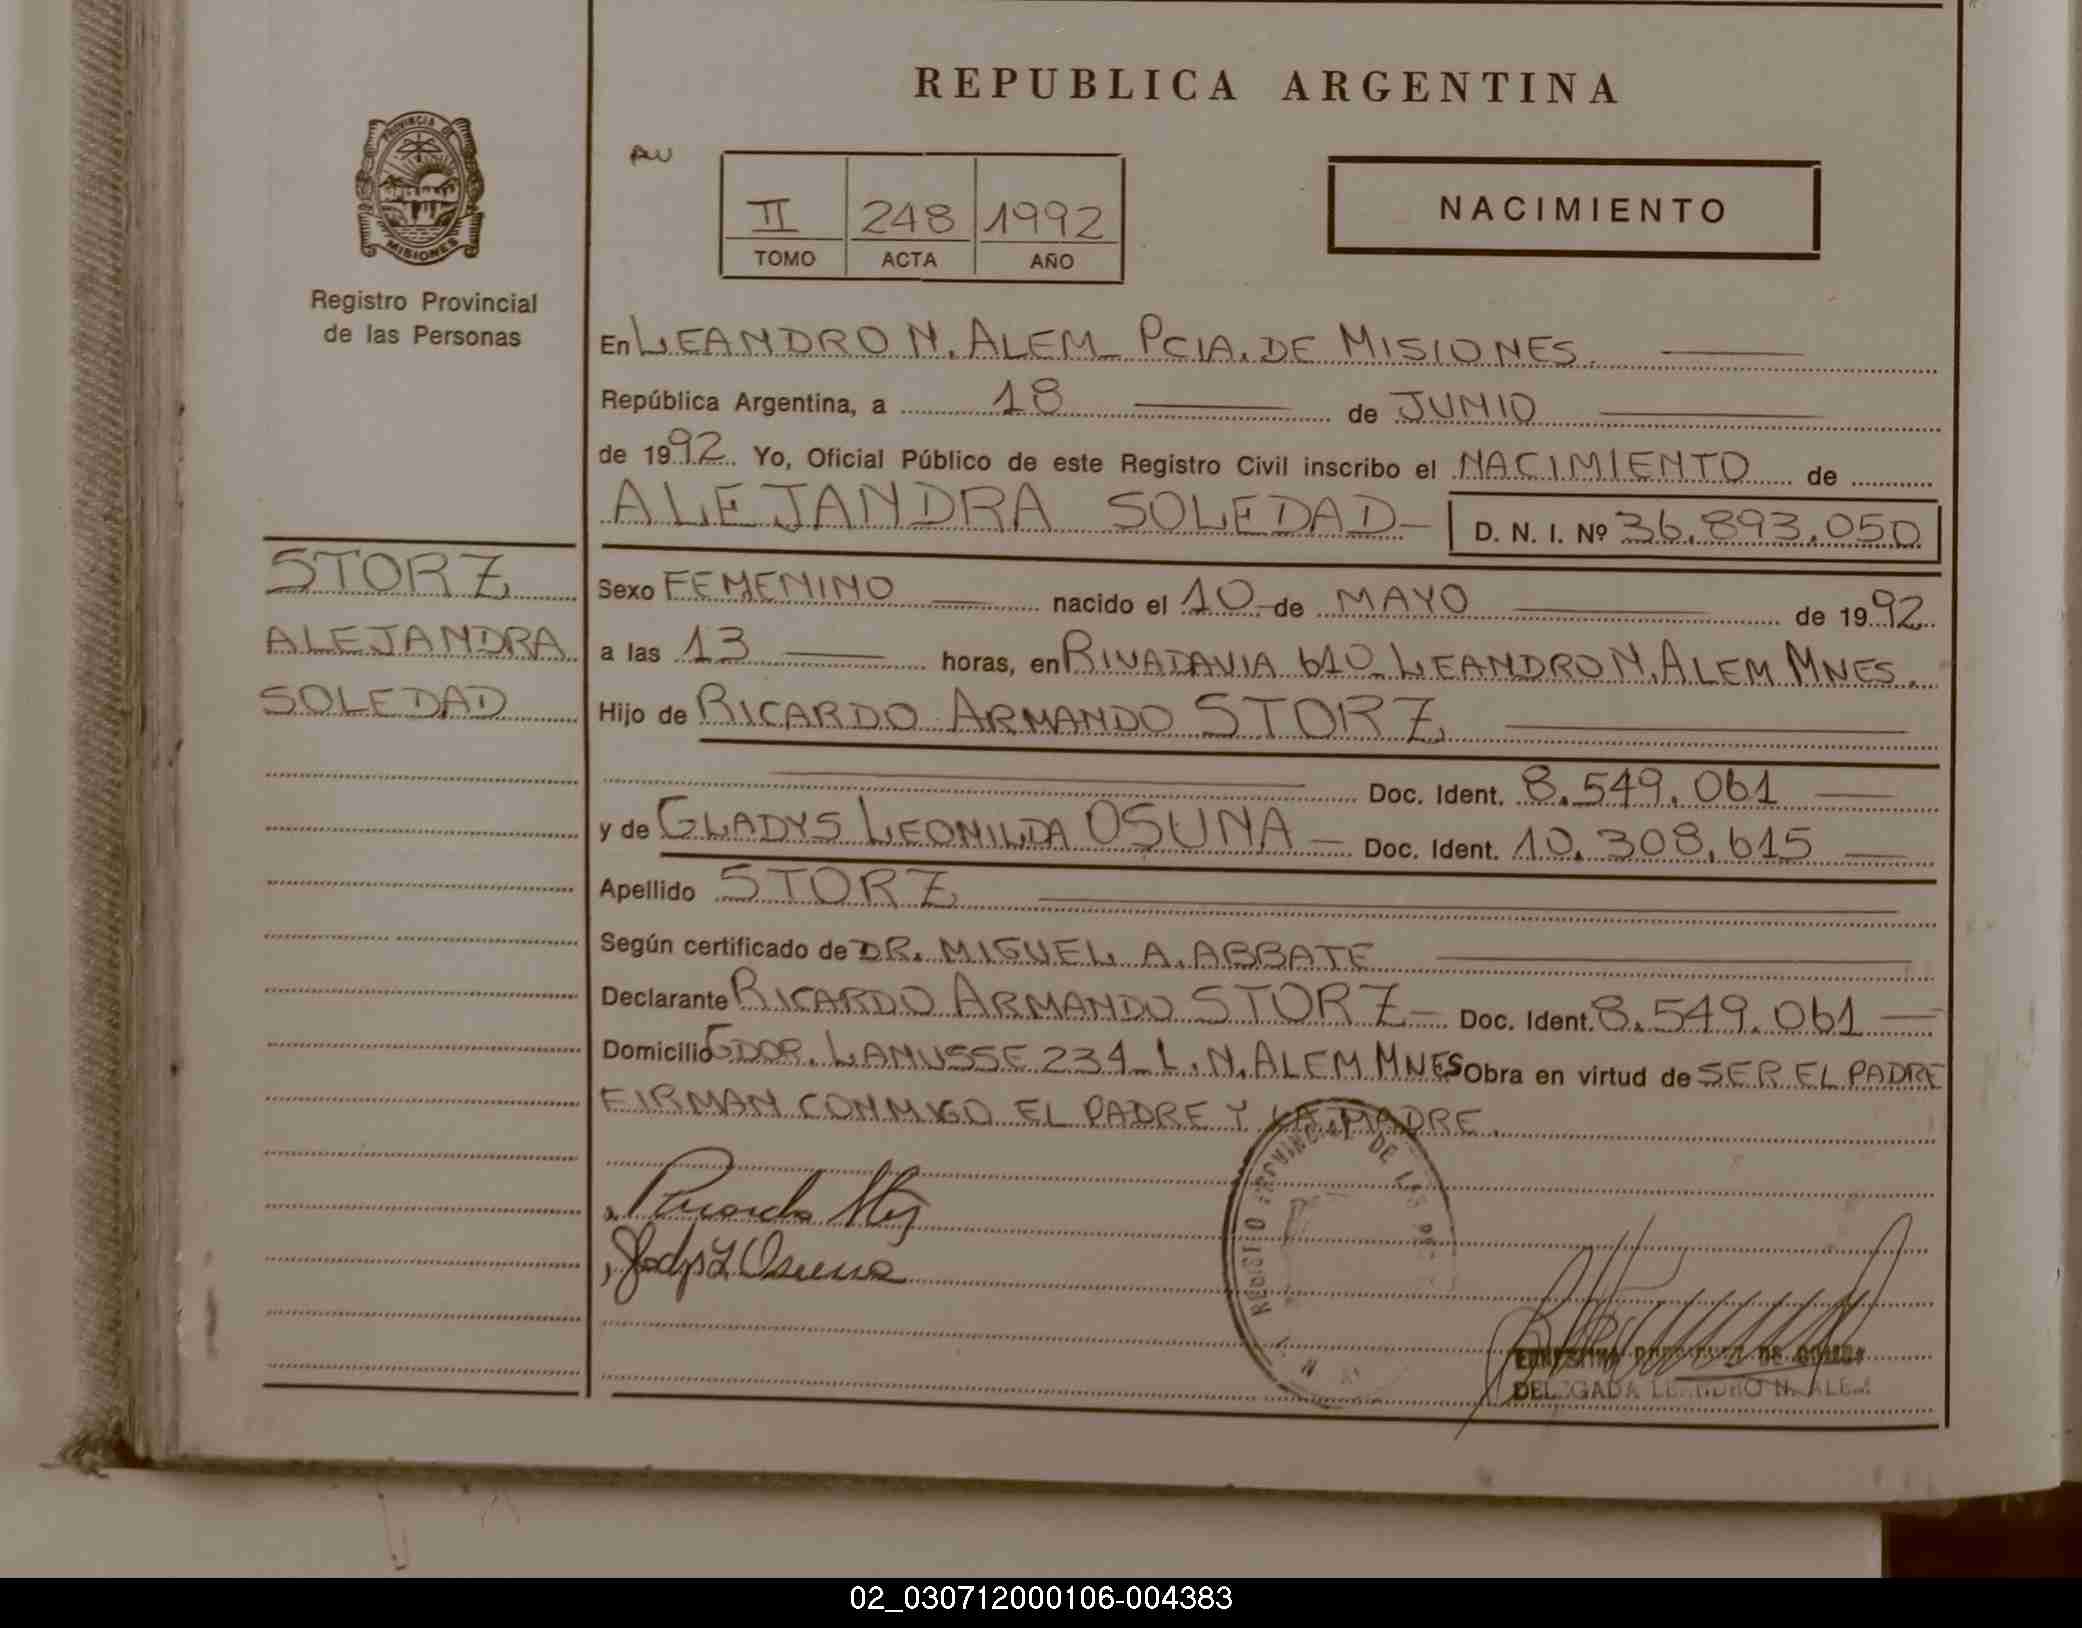 REPUBLICA ARGENTINA
PROVINCIA DE
MISIONES
Registro Provincial
de las Personas
II 248 1992
TOMO ACTA AÑO
NACIMIENTO
En LEANDRO N. ALEM PCIA. DE MISIONES.
República Argentina, a 18 de JUNIO
de 1992. Yo, Oficial Público de este Registro Civil inscribo el NACIMIENTO de
ALEJANDRA SOLEDAD — D. N. I. Nº 36.893.050
STORZ
ALEJANDRA
SOLEDAD
Sexo FEMENINO nacido el 10 de MAYO de 1992
a las 13 horas, en RIVADAVIA 610 LEANDRO N. ALEM MNES.
Hijo de RICARDO ARMANDO STORZ
Doc. Ident. 8.549.061
y de GLADYS LEONILDA OSUNA — Doc. Ident. 10.308.615
Apellido STORZ
Según certificado de DR. MIGUEL A. ABBATE
Declarante RICARDO ARMANDO STORZ — Doc. Ident. 8.549.061
Domicilio GDOR. LANUSSE 234 L. N. ALEM MNES Obra en virtud de SER EL PADRE
FIRMAN CONMIGO EL PADRE Y LA MADRE.
REGISTRO PROVINCIAL DE LAS
Ricardo
Gladys L Osuna
DE
DELEGADA LEANDRO N. ALEM
02_030712000106-004383